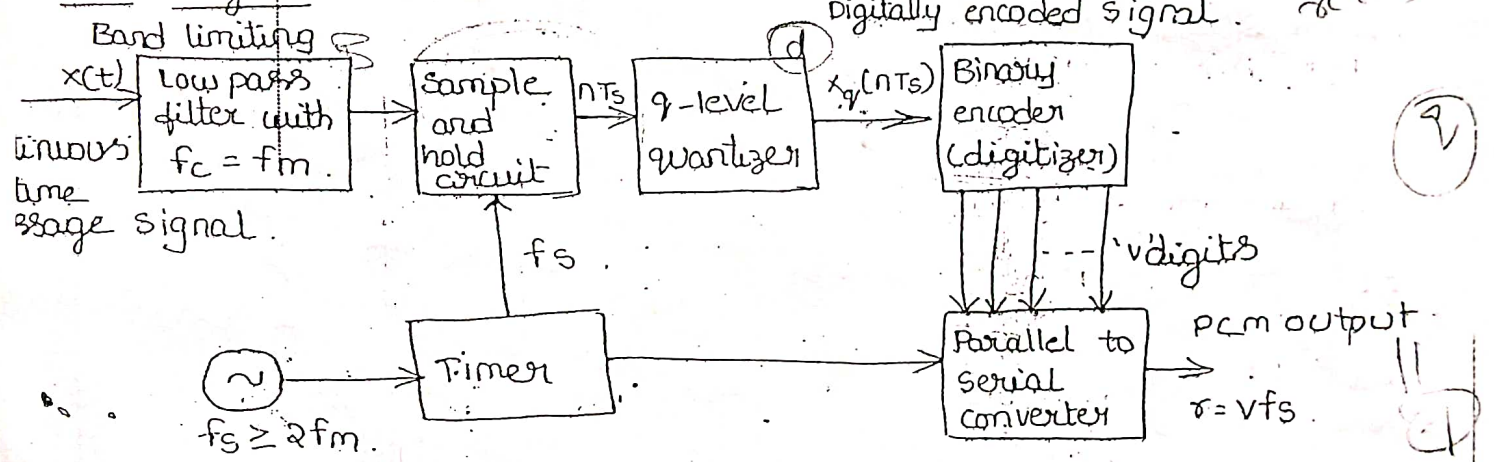 Digitally encoded signal.
Band limiting
x(t)
Low pass
filter with
fc = fm.
tinuous
time
ssage signal.
Sample
and
hold
circuit
nTs
q-level
quantizer
d
xq(nTs)
Binary
encoder
(digitizer)
q
fs.
--- 'v'digits
Timer
~
fs ≥ 2fm.
Parallel to
serial
converter
PCM output
r = vfs.